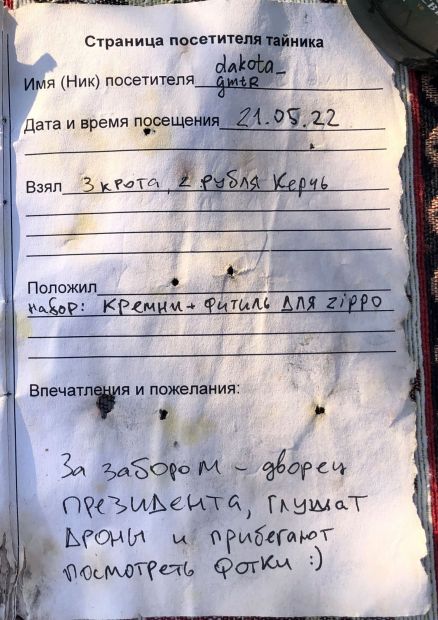 Страница посетителя тайника
dakota_
Имя (Ник) посетителя gmtR
Дата и время посещения 21.05.22
Взял 3 крота, 2 рубля Керчь
Положил
набор: кремни + фитиль для zippo
Впечатления и пожелания:
За забором - дворец
президента, глушат
дроны и прибегают
посмотреть фотки :)